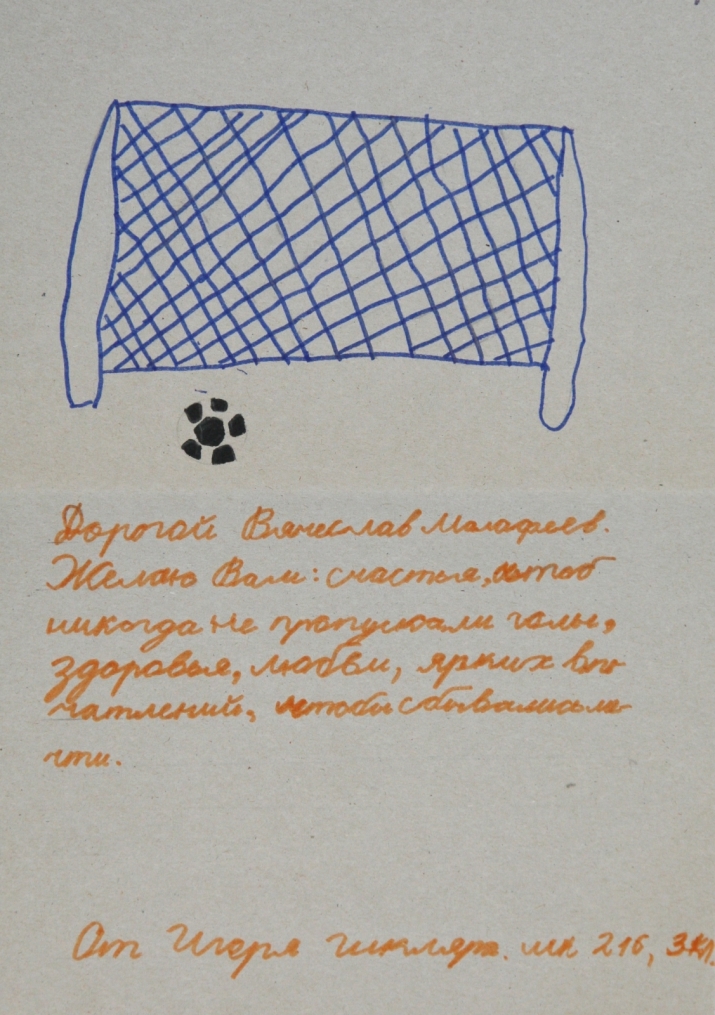 Дорогой Вячеслав Малафеев.
Желаю Вам: счастья, чтоб
никогда не пропускали голы,
здоровья, любви, ярких впе-
чатлений, чтобы сбывались ме-
чты.
От Игоря шк 216, 3кл.